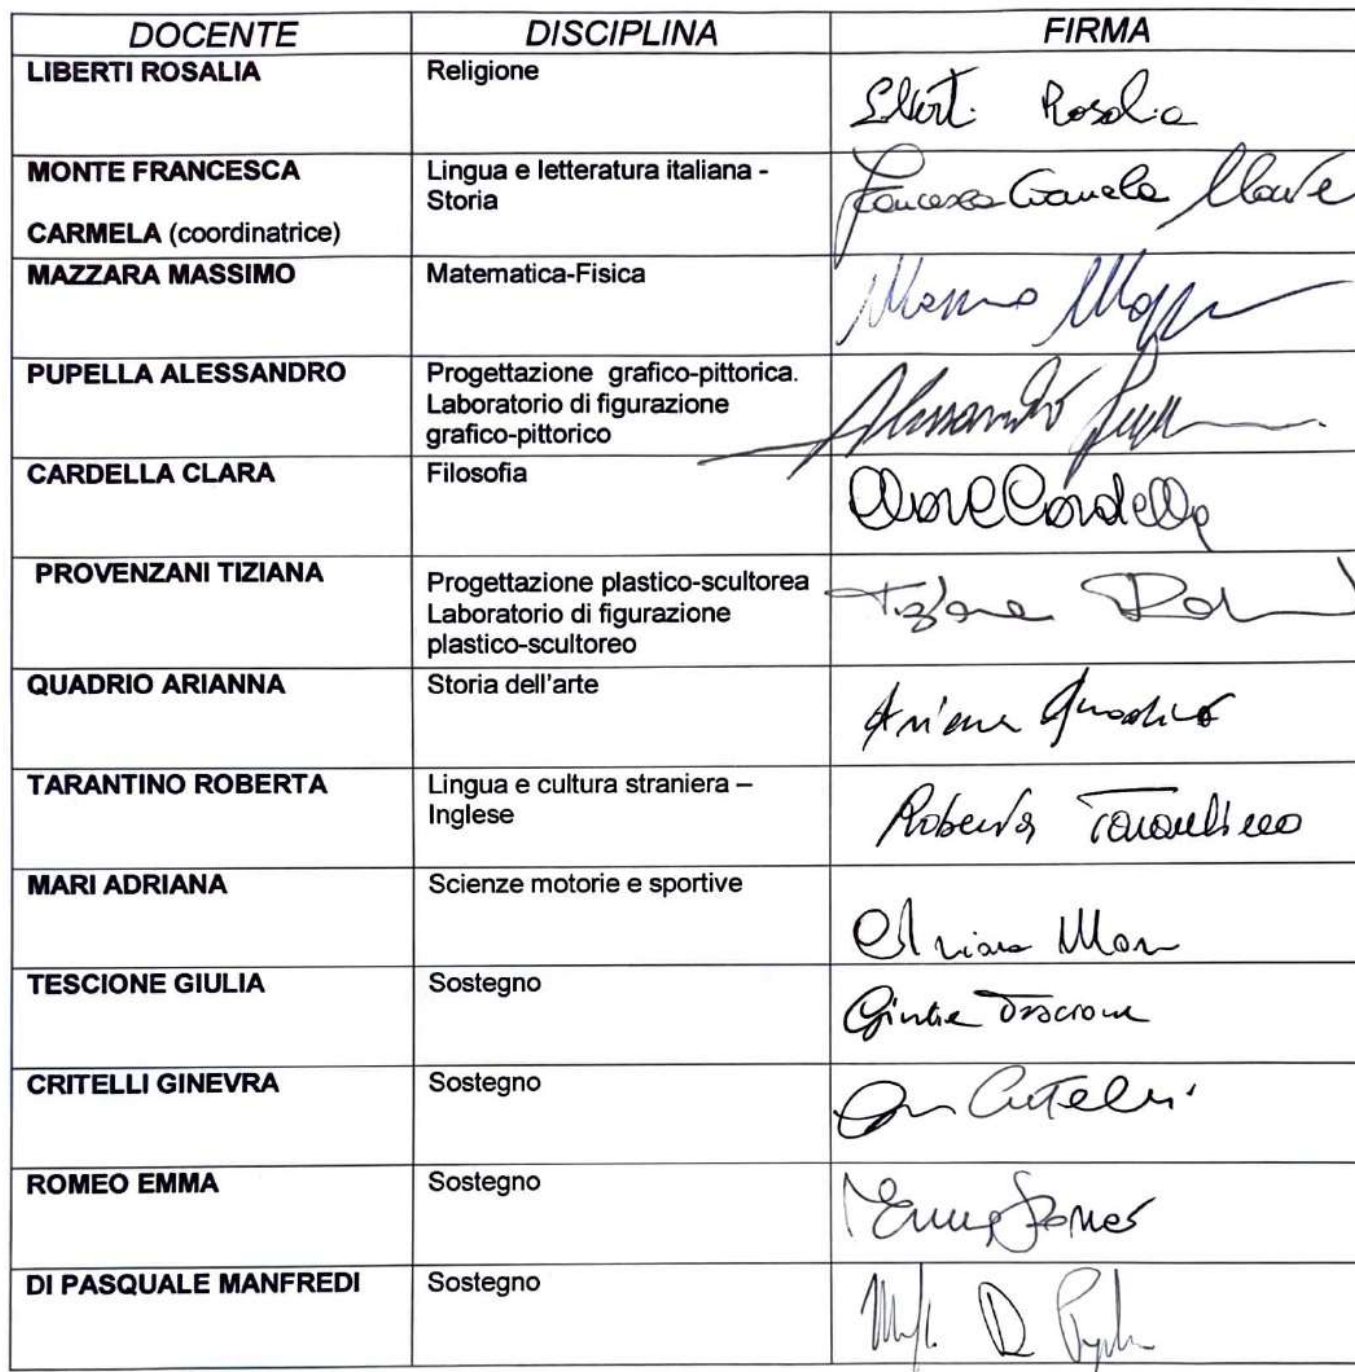 DOCENTE DISCIPLINA FIRMA
LIBERTI ROSALIA Religione
Rosalia
MONTE FRANCESCA Lingua e letteratura italiana -
Storia
CARMELA (coordinatrice)
Francesca Carmela Monte
MAZZARA MASSIMO Matematica-Fisica
PUPELLA ALESSANDRO Progettazione grafico-pittorica.
Laboratorio di figurazione
grafico-pittorico
Alessandro
CARDELLA CLARA Filosofia
Clara Cardella
PROVENZANI TIZIANA Progettazione plastico-scultorea
Laboratorio di figurazione
plastico-scultoreo
Tiziana
QUADRIO ARIANNA Storia dell'arte
Arianna Quadrio
TARANTINO ROBERTA Lingua e cultura straniera –
Inglese
Roberta Tarantino
MARI ADRIANA Scienze motorie e sportive
Adriana Mari
TESCIONE GIULIA Sostegno
Giulia Tescione
CRITELLI GINEVRA Sostegno
Critelli
ROMEO EMMA Sostegno
Emma Romeo
DI PASQUALE MANFREDI Sostegno